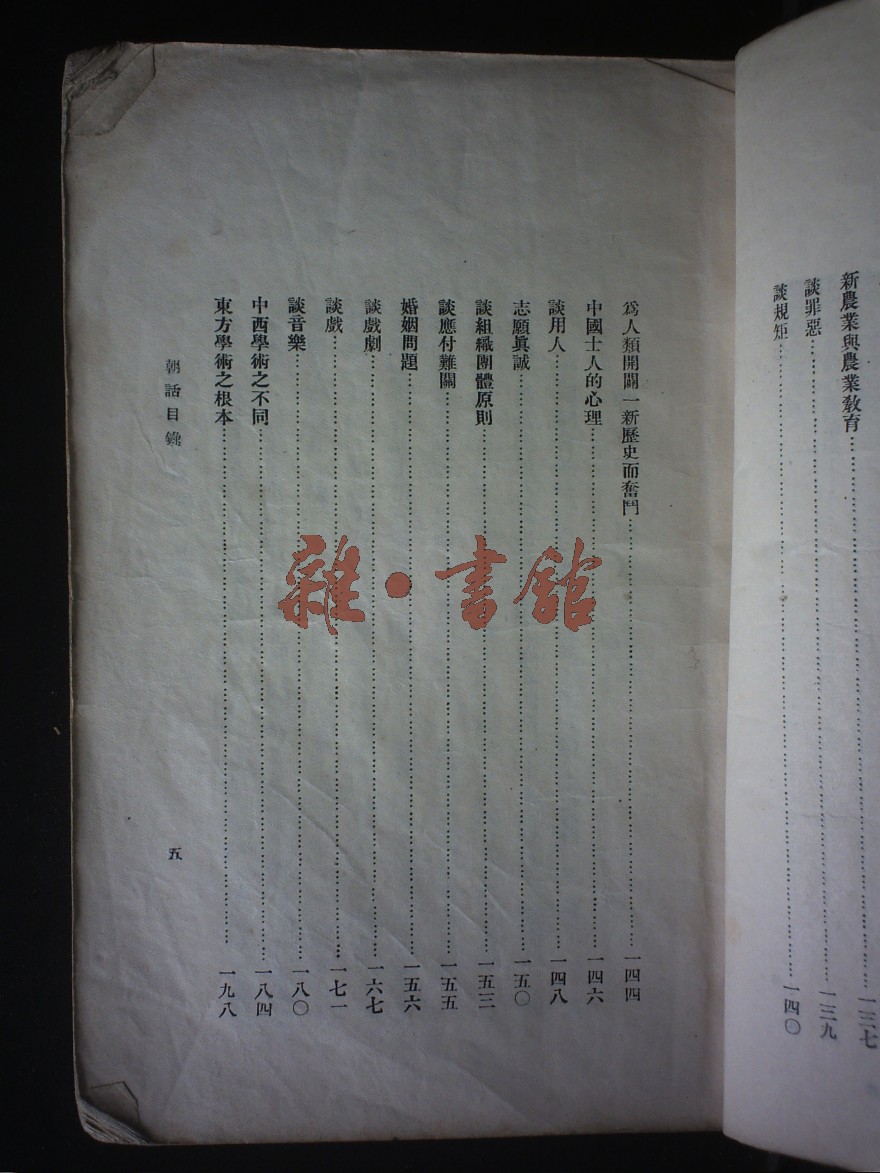 新農業與農業教育……一三七
談罪惡……一三九
談規矩……一四〇
爲人類開闢一新歷史而奮鬥……一四四
中國士人的心理……一四六
談用人……一四八
志願眞誠……一五〇
談組織團體原則……一五三
談應付難關……一五五
婚姻問題……一五六
談戲劇……一六七
談戲……一七一
談音樂……一八〇
中西學術之不同……一八四
東方學術之根本……一九八
朝話目錄
五
雜·書館